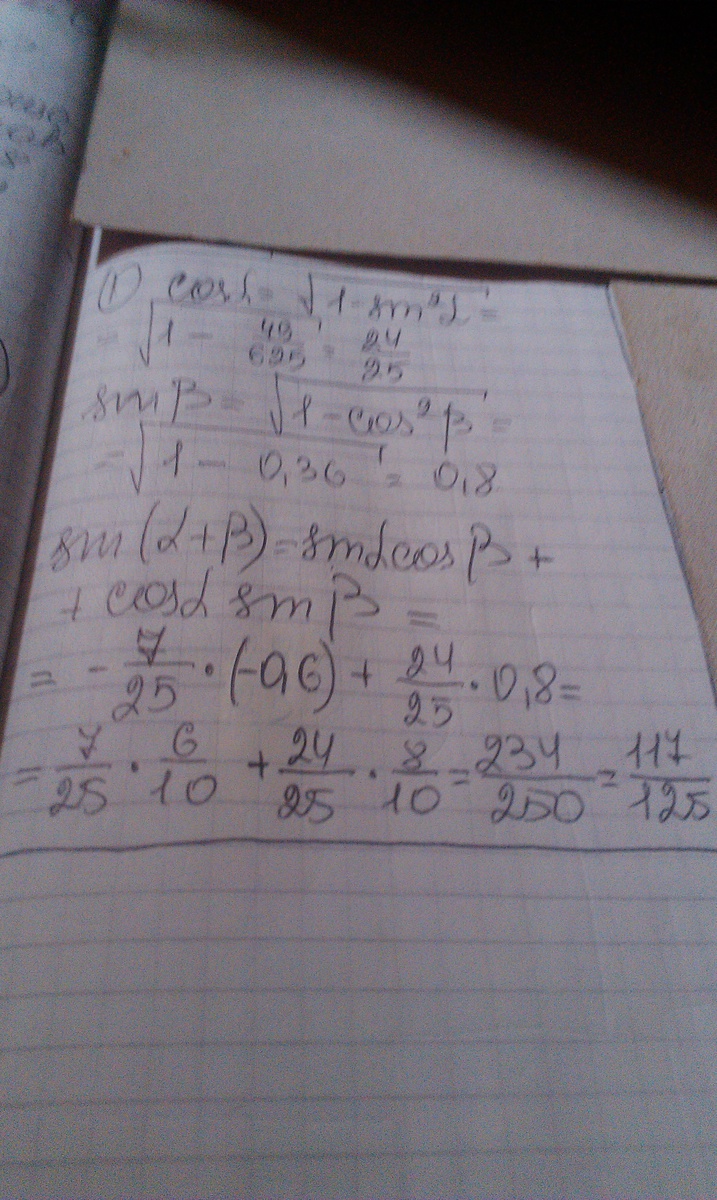 ① cosα = √1-sin²α =
= √1 - 49/625 = 24/25
sinβ = √1-cos²β =
= √1 - 0,36 = 0,8
sin(α+β)=sinαcosβ +
+ cosα sinβ =
= - 7/25 · (-0,6) + 24/25 · 0,8 =
= 7/25 · 6/10 + 24/25 · 8/10 = 234/250 = 117/125